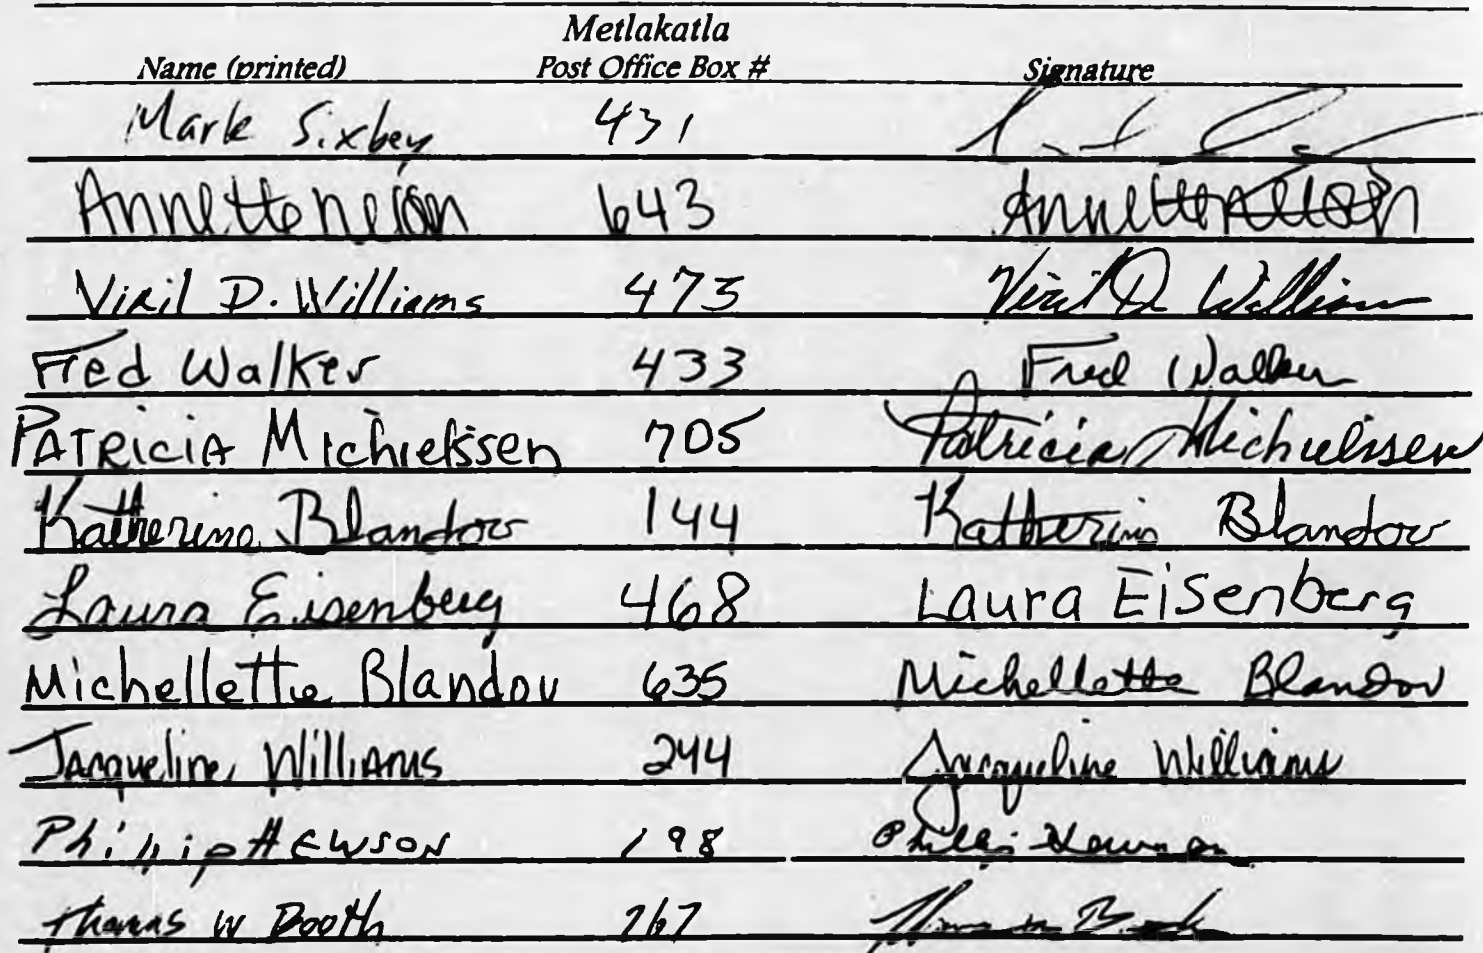 Metlakatla
Name (printed) Post Office Box # Signature
Mark Sixbey 431
Annette Nelson 643 Annette Nelson
Viril D. Williams 473 Viril D Williams
Fred Walker 433 Fred Walker
PATRICIA Michielssen 705 Patricia Michielssen
Katherine Blandov 144 Katherine Blandov
Laura Eisenberg 468 Laura Eisenberg
Michellette Blandov 635 Michellette Blandov
Jacqueline Williams 244 Jacqueline Williams
Phillip HEWSON 198 Phillip Hewson
Thomas W Booth 767 Thomas W Booth